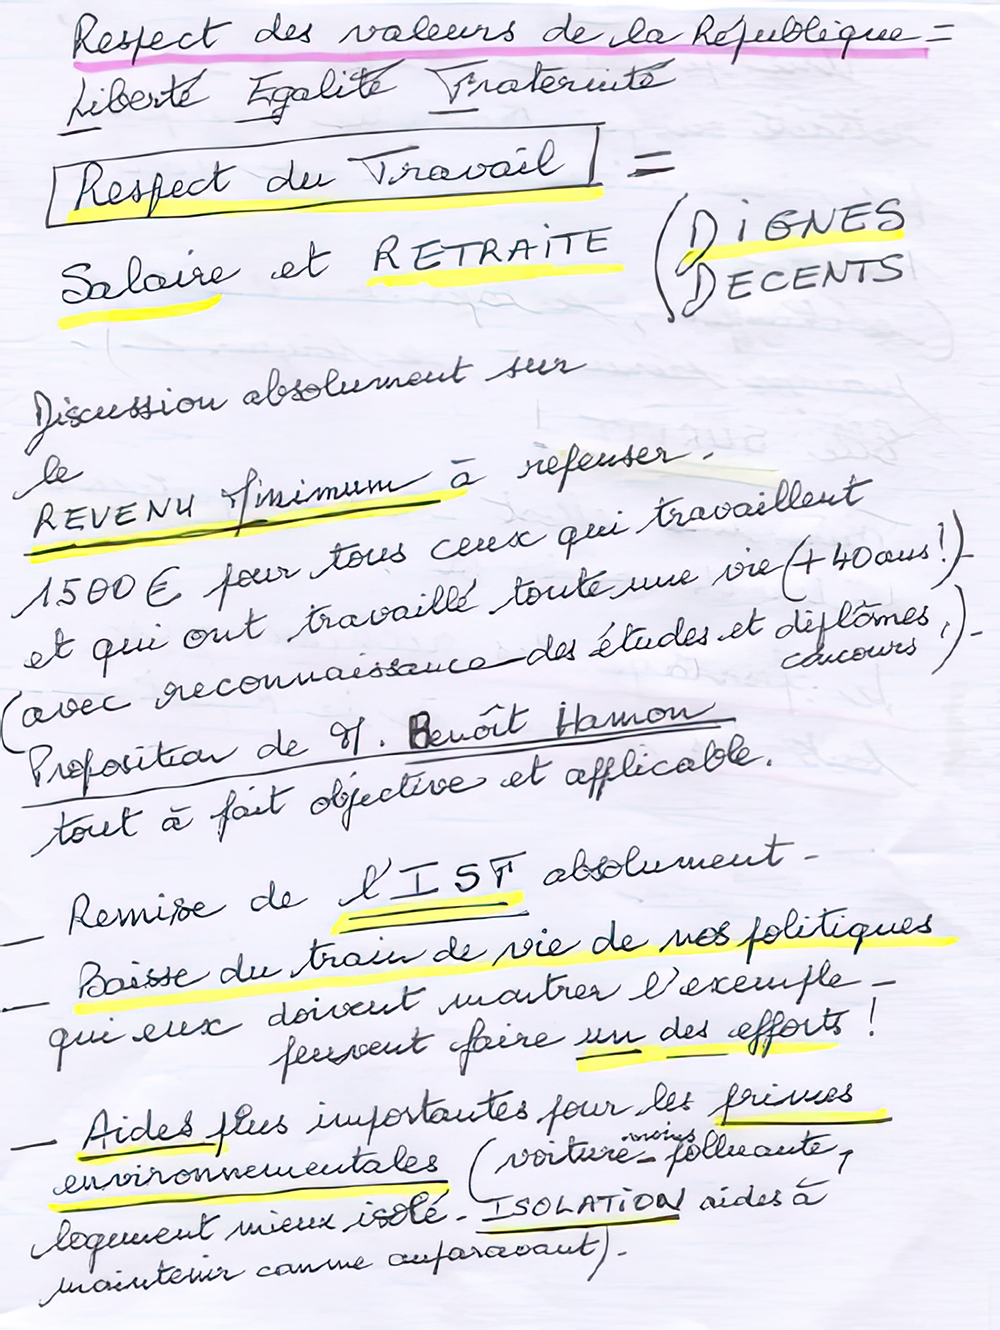 Respect des valeurs de la République =
Liberté Egalité Fraternité
Respect du Travail =
Salaire et RETRAITE ( DIGNES
DECENTS
Discussion absolument sur
le
REVENU Minimum à repenser.
1500 € pour tous ceux qui travaillent
et qui ont travaillé toute une vie (+ 40 ans !)-
(avec reconnaissance des études et diplômes,
concours !)-
Proposition de M. Benoît Hamon
tout à fait objective et applicable.
— Remise de l'ISF absolument -
— Baisse du train de vie de nos politiques
qui eux doivent montrer l'exemple -
peuvent faire un des efforts !
— Aides plus importantes pour les primes
environnementales (voiture moins polluante,
logement mieux isolé - ISOLATION aides à
maintenir comme auparavant).-